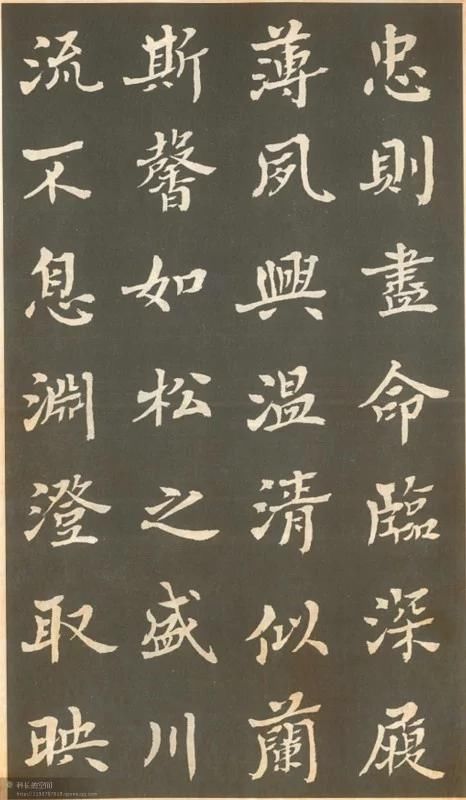 忠則盡命臨深履
薄夙興温清似蘭
斯馨如松之盛川
流不息淵澄取映
科长的空间